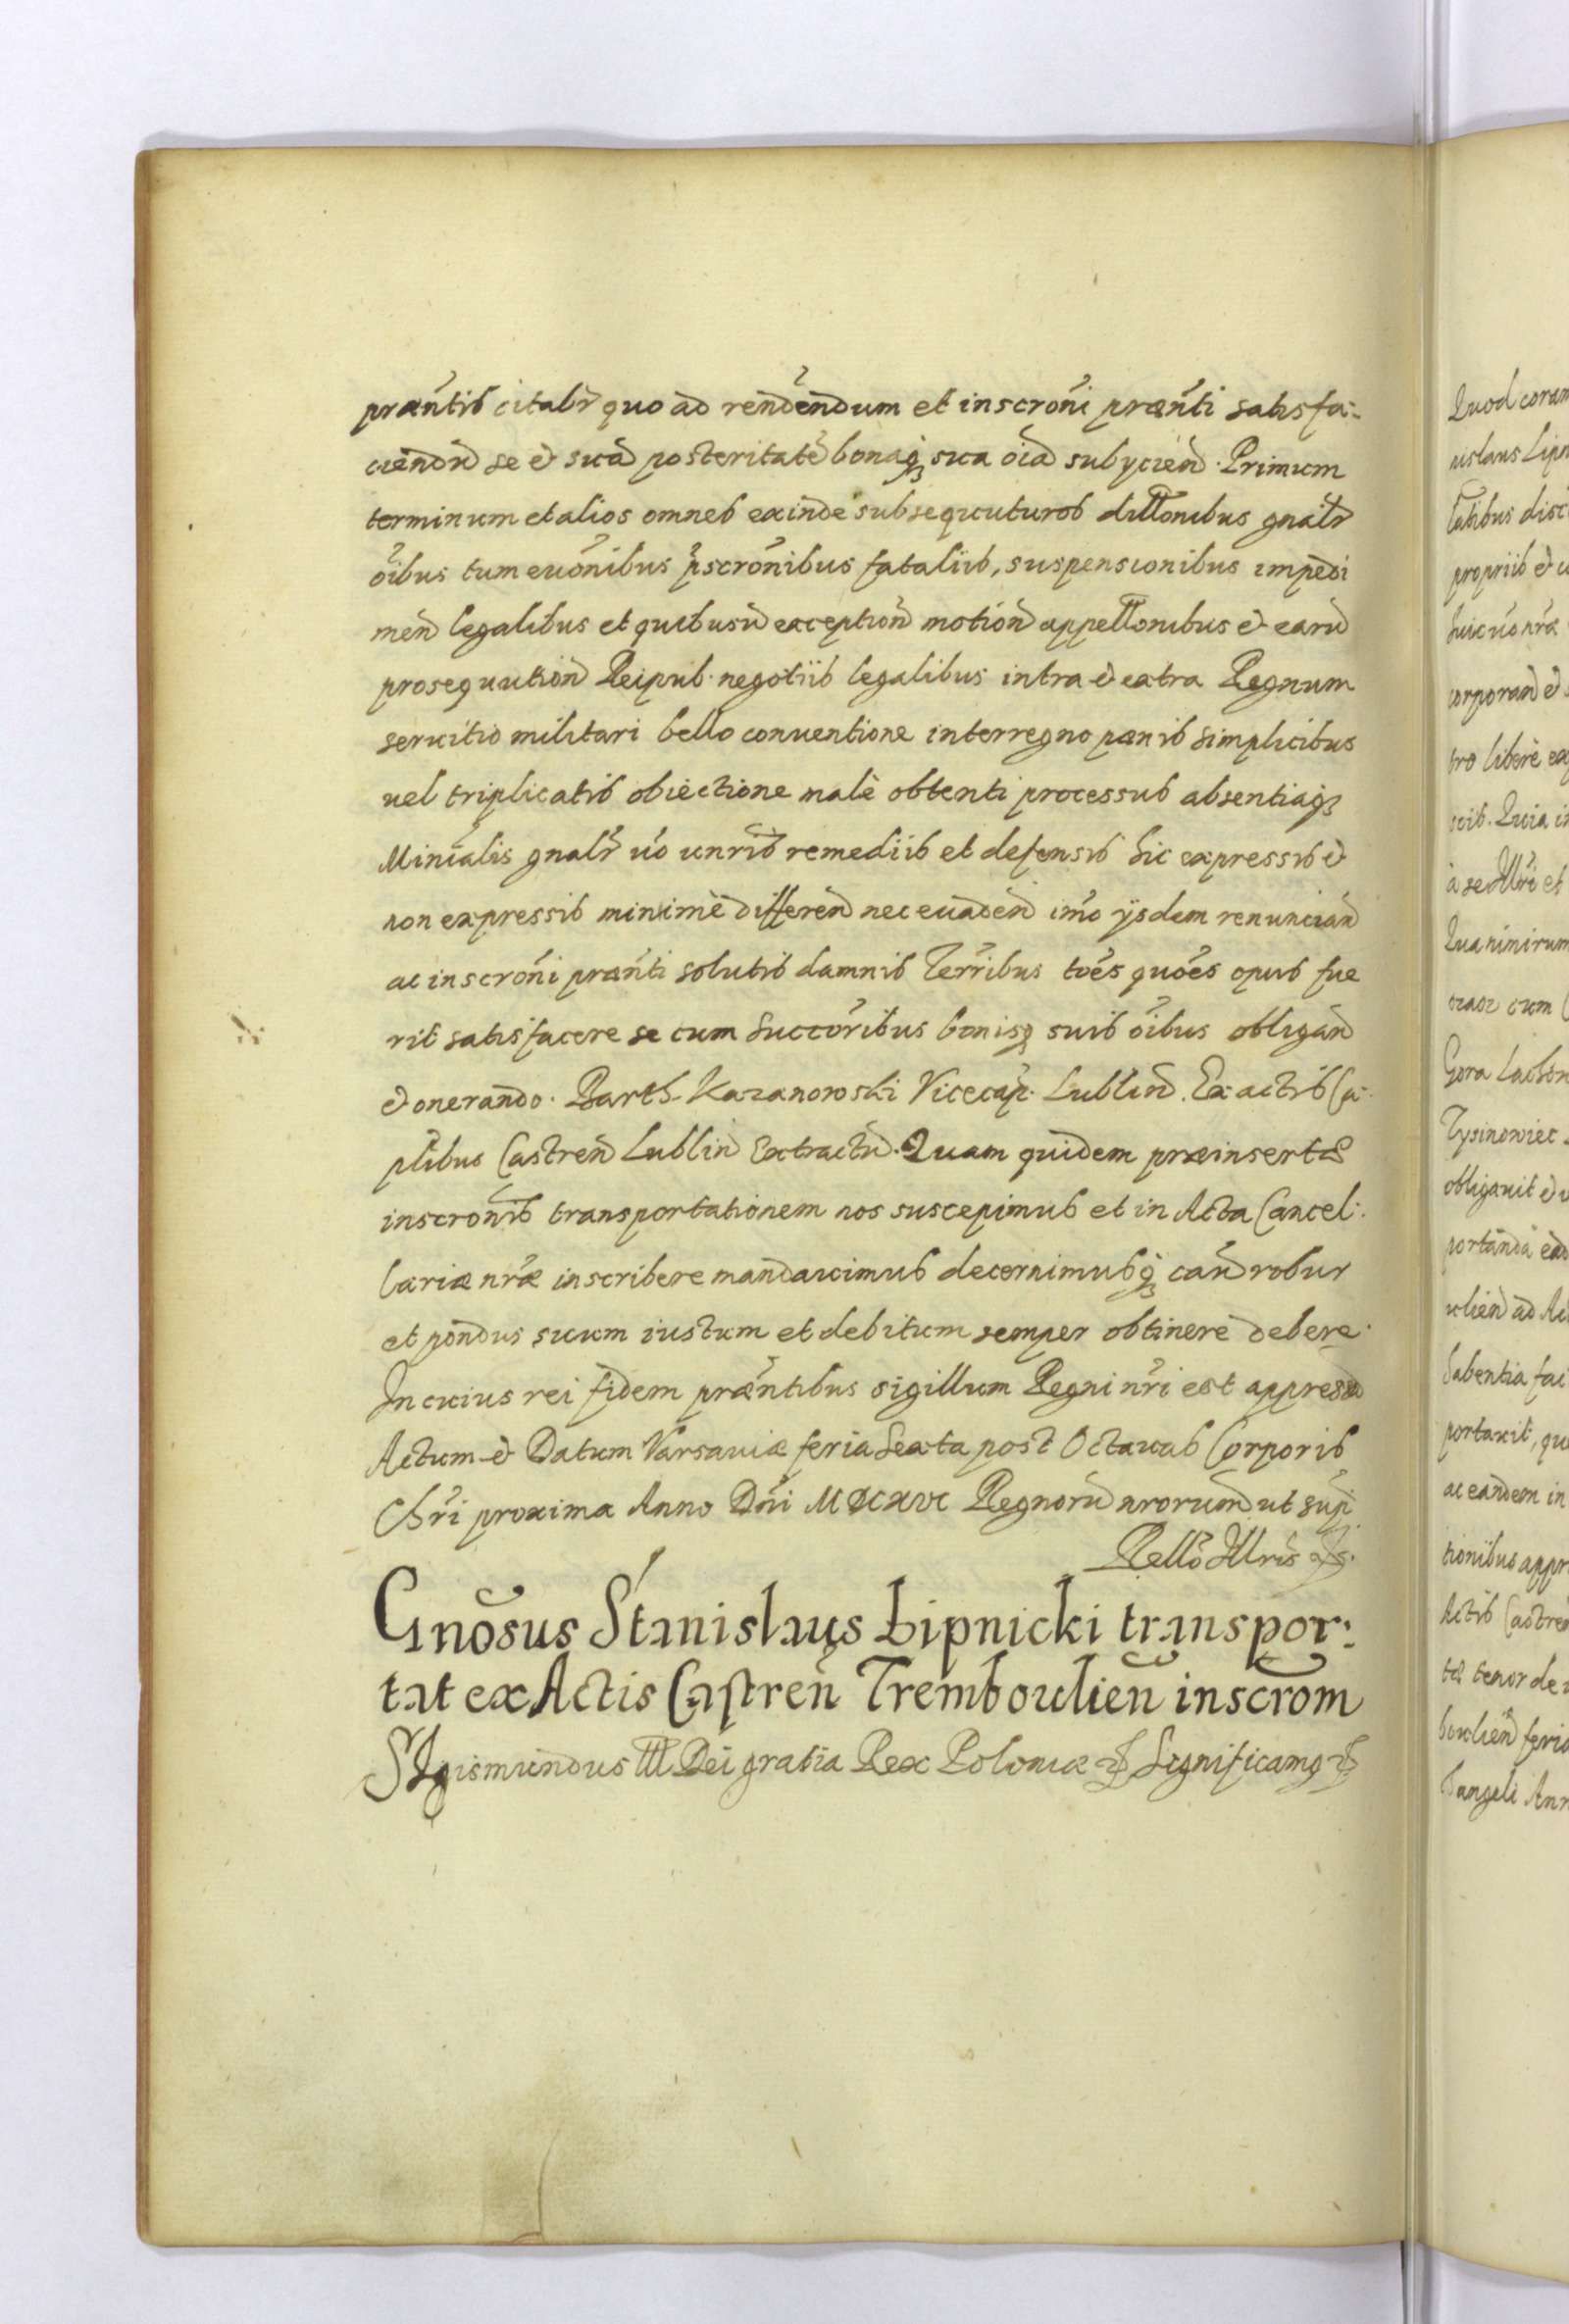 præntis citabr quo ad rendendum et inscroni prænti satisfa:
ciendu se et sua posteritate bonaq sua oia subycien. Primum
terminum et alios omnes exinde subsequuturos dillonibus gnalr
oibus tum evonibus pscronibus fataliis, suspensionibus impedi
men legalibus et quibusu exception motion appellonibus et earu
prosequution Reipub. negotiis legalibus intra et extra Regnum
servitio militari bello conventione interregno pænis simplicibus
vel triplicatis obiectione malè obtenti processus absentiaq
Minialis gnalr vo unris remediis et defensis hic expressis et
non expressis minimè differen nec evaden imo ysdem renuncian
ac inscroni prænti solutis damnis Terribus toes quoes opus fue
rit satisfacere se cum succoribus bonisq suis oibus obligan
et onerando. Barth. Kazanowski Vicecap. Lublin. Ex actis Ca:
plibus Castren Lublin Extractu. Quam quidem præinsertæ
inscronis transportationem nos suscepimus et in Acta Cancel:
lariæ nræ inscribere mandavimus decernimusq ean robur
et pondus suum iustum et debitum semper obtinere debere.
In cuius rei fidem præntibus sigillum Regni nri est appressu
Actum et Datum Varsaviæ feria Sexta post Octavas Corporis
Chri proxima Anno Dni MDCXVI Regnoru nrorum ut sup
Rello Illris
Gnosus Stanislaus Lipnicki transpor:
tat ex Actis Castren Tremboulien inscrom
SIgismundus III Dei gratia Rex Poloniæ Significamq
Quod coram
nislaus Lipn
tatibus disc
propriis et
huic vo nræ
corporan et
tro liberè ex
scis. Quia i
à se Illri et
Qua nimirum
cum
Gora
Tysinowiec
obligavit et
portanda ead
vlien ad Ac
habentia fac
portavit, qu
ac eandem in
tionibus appr
Actis Castre
tæ tenor de
boulien feri
Tangeli Ann